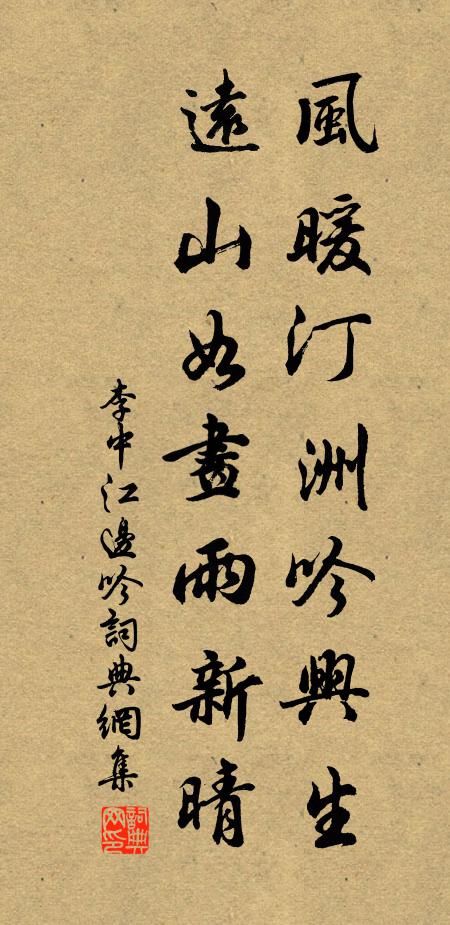 風暖汀洲吟興生
遠山如畫雨新晴
李中江邊吟詞典網集
詞典网印